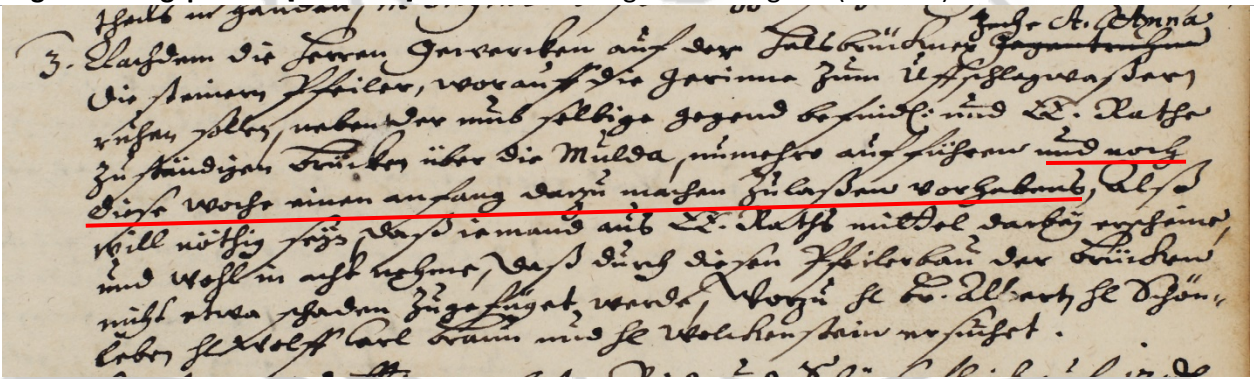 theils in
Zeche St. Anna
3. Nachdem die Herren Gewercken auf der Halsbrückner Gegentruhme
die steinern Pfeiler, worauff die Gerinne zum Uffschlagwaßern
ruhen sollen, neben der umb selbige gegend befindl: und EE. Rathe
zuständigen Brücken über die Mulda, numehro aufführen und noch
diese woche einen anfang darzu machen zulaßen vorhabens, Alß
will nöthig seyn, daß iemand aus EE. Raths mittel darbey erscheine,
und wohl in acht nehme, daß durch diesen Pfeilerbau der Brücken
nicht etwa schaden zugefüget werde, Worzu hl Br. Albert, hl Schön-
leben hl Wolff Carl Braun und hl Wolckenstein ersuchet.